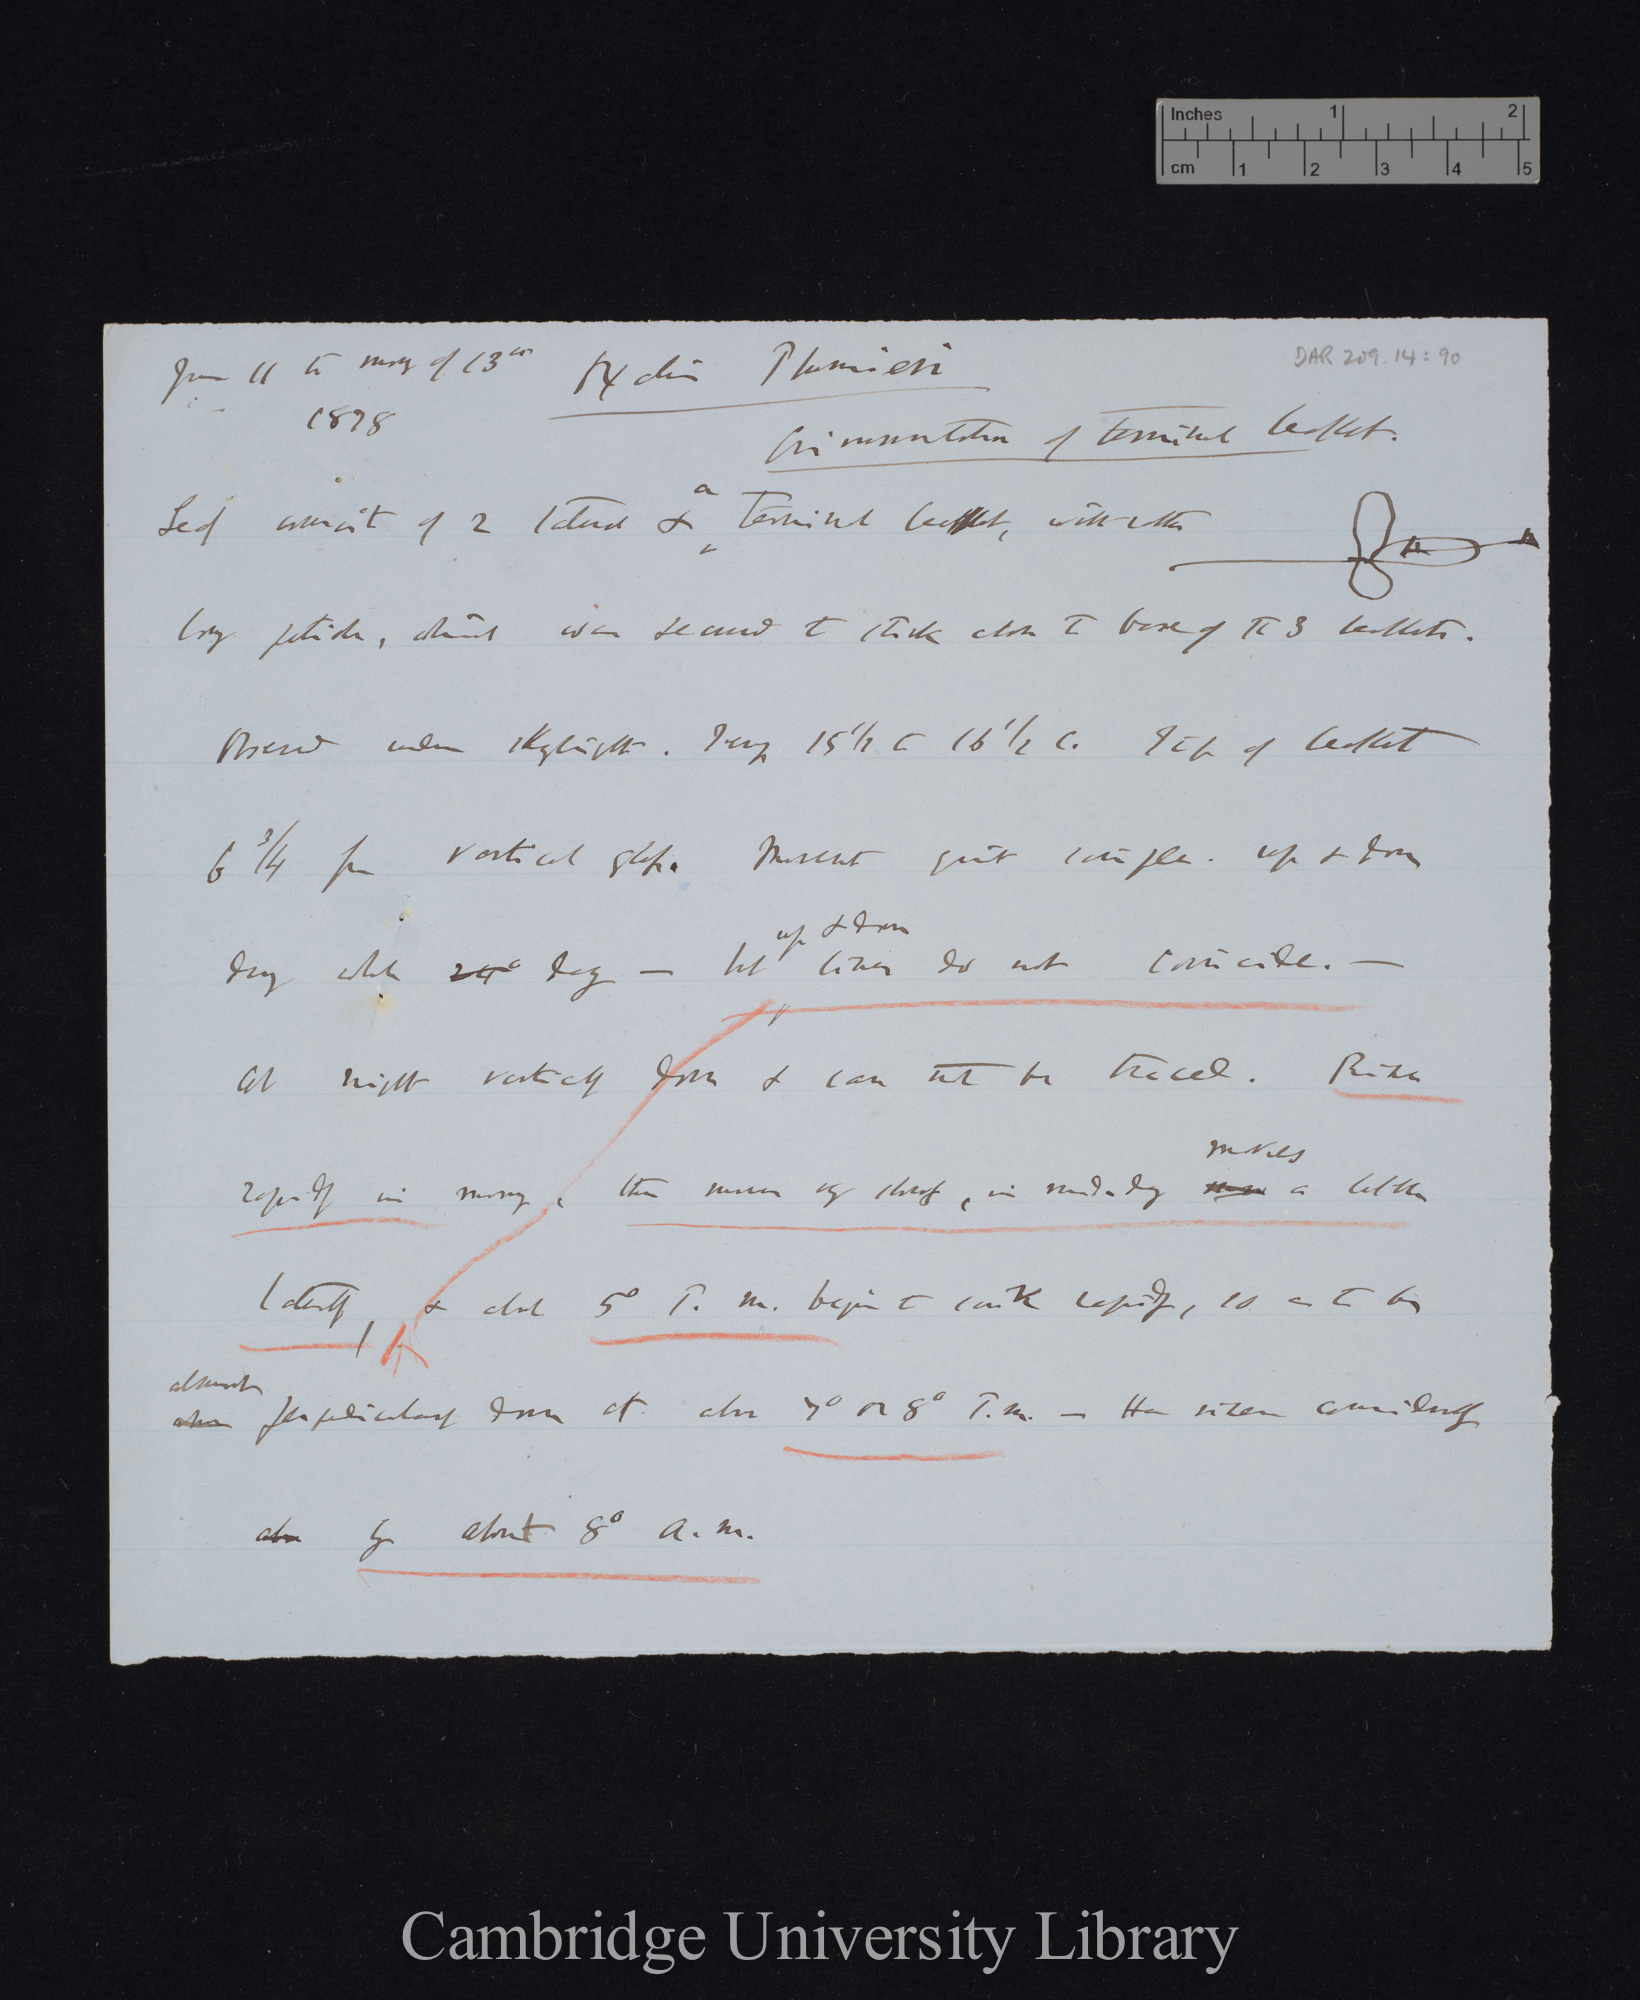 Inches 1 2
cm 1 2 3 4 5
DAR 209.14:90
June 11 to morg of 13th Oxalis Plumieri
1878
Circumnutation of terminal leaflet.
Leaf consists of 2 lateral & a terminal leaflet, with rather
long petiole, which was secured to stick close to base of the 3 leaflets.
Observed under skylight. Temp 15 1/2 to 16 1/2 C. Tip of leaflet
6 3/4 from vertical glass. Movement quite simple. up & down
during whole 24° day — but up & down lines do not coincide. —
At night vertically down & can not be traced. Rises
rapidly in morng, then moves very slowly, in mid-day moves a little
laterally, & about 5° P. m. begins to sink rapidly, so as to be
almost perpendicularly down at about 7° or 8° P.m. — Has risen considerably
by about 8° a. m.
Cambridge University Library